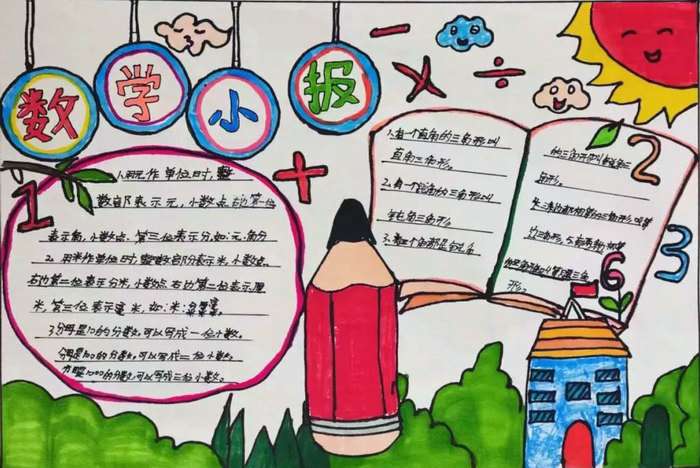 数学小报
- × ÷
+
1
1.用元作单位时,整
数部分表示元,小数点右边第一位
表示角,小数点第二位表示分,如:元.角分
2. 用米作单位时,整数部分表示米,小数点
右边第一位表示分米,小数点右边第二位表示厘
米,第三位表示毫米,如:米.
3.分母是10的分数,可以写成一位小数。
分母是100的分数,可以写成二位小数。
分母是1000的分数,可以写成三位小数。
1.有一个直角的三角形叫
直角三角形。
2.有一个钝角的三角形叫
钝角三角形。
3.有三个角都是锐角
的三角形叫锐角三
角形。
形。
2
3
6